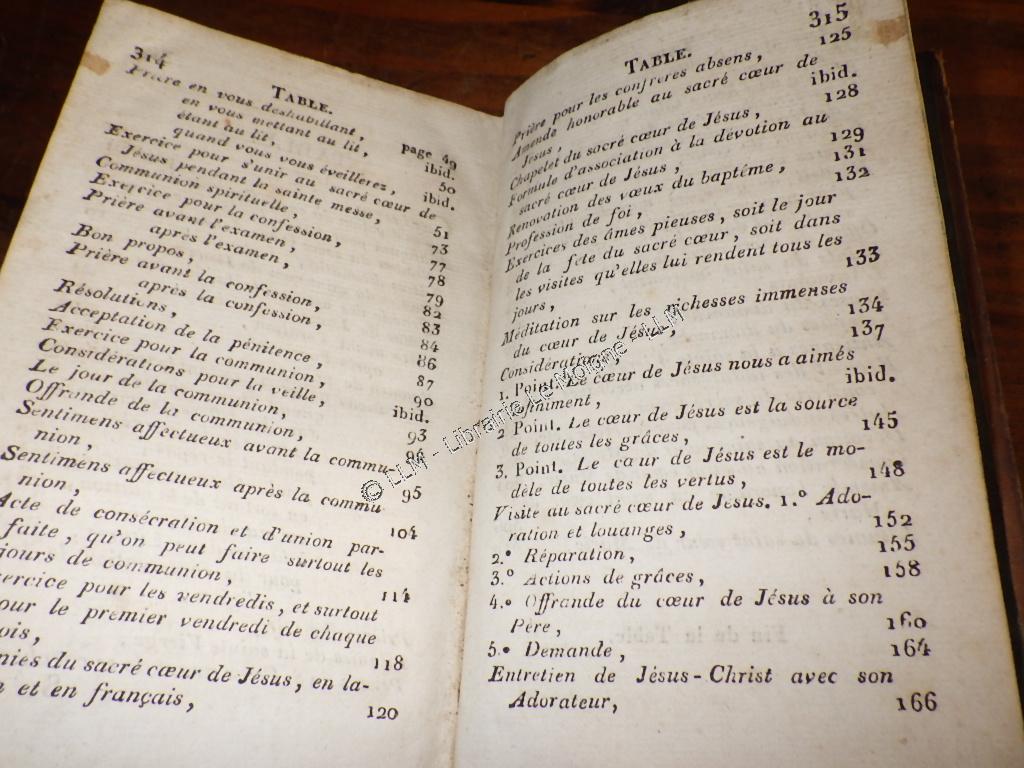 314
TABLE.
Prière en vous deshabillant, page 49
en vous mettant au lit, ibid.
étant au lit, 50
quand vous vous éveillerez, ibid.
Exercice pour s'unir au sacré cœur de
Jésus pendant la sainte messe, 51
Communion spirituelle, 73
Exercice pour la confession, 77
Prière avant l'examen, 78
après l'examen, 79
Bon propos, 82
Prière avant la confession, 83
après la confession, 84
Résolutions, 86
Acceptation de la pénitence, 87
Exercice pour la communion, 90
Considérations pour la veille, ibid.
Le jour de la communion, 93
Offrande de la communion,
Sentimens affectueux avant la commu-
nion, 95
Sentimens affectueux après la commu
nion, 104
Acte de consécration et d'union par-
faite, qu'on peut faire surtout les
jours de communion, 114
ercice pour les vendredis, et surtout
our le premier vendredi de chaque
ois, 118
nies du sacré cœur de Jésus, en la-
n et en français, 120
315
TABLE.
Prière pour les confrères absens, 125
Amende honorable au sacré cœur de
Jésus, ibid.
Chapelet du sacré cœur de Jésus, 128
Formule d'association à la dévotion au
sacré cœur de Jésus, 129
Renovation des vœux du baptême, 131
Profession de foi, 132
Exercices des âmes pieuses, soit le jour
de la fête du sacré cœur, soit dans
les visites qu'elles lui rendent tous les
jours, 133
Méditation sur les richesses immenses
du cœur de Jésus, 134
Considérations, 137
1. Point. Le cœur de Jésus nous a aimés
infiniment, ibid.
2 Point. Le cœur de Jésus est la source
de toutes les grâces, 145
3. Point. Le cœur de Jésus est le mo-
dèle de toutes les vertus, 148
Visite au sacré cœur de Jésus. 1.º Ado-
ration et louanges, 152
2.º Réparation, 155
3.º Actions de grâces, 158
4.º Offrande du cœur de Jésus à son
Père, 160
5.º Demande, 164
Entretien de Jésus-Christ avec son
Adorateur, 166
© LLM - Librairie Le Moigne - LLM